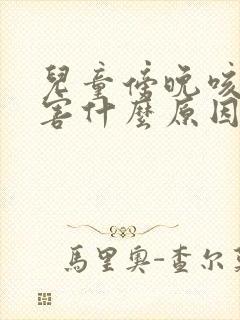 兒童傍晚咳
害什麼原因
馬里奧-查尔